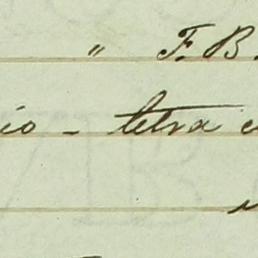 " F. B.
io - letra